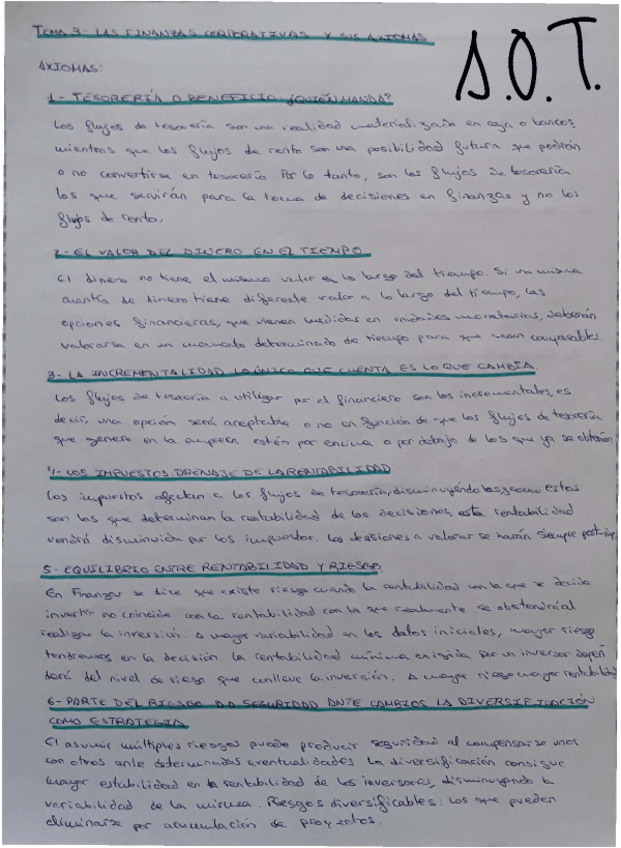 TEMA 3- LAS FINANZAS CORPORATIVAS Y SUS AXIOMAS
A.O.T.
AXIOMAS:
1- TESORERÍA O BENEFICIO ¿QUIÉN MANDA?
Los flujos de tesorería son una realidad materializada en caja o bancos,
mientras que los flujos de renta son una posibilidad futura que podrán
o no convertirse en tesorería. Por lo tanto, son los flujos de tesorería
los que servirán para la toma de decisiones en finanzas y no los
flujos de renta.
2- EL VALOR DEL DINERO EN EL TIEMPO
El dinero no tiene el mismo valor a lo largo del tiempo. Si una misma
cuantía de dinero tiene diferente valor a lo largo del tiempo, las
opciones financieras, que vienen medidas en unidades monetarias, deberán
valorarse en un momento determinado de tiempo para que sean comparables.
3- LA INCREMENTALIDAD LO ÚNICO QUE CUENTA ES LO QUE CAMBIA
Los flujos de tesorería a utilizar por el financiero son los incrementales, es
decir, una opción será aceptable o no en función de que los flujos de tesorería
que genere en la empresa estén por encima o por debajo de los que ya se obtenían
4- LOS IMPUESTOS DRENAJE DE LA RENTABILIDAD
Los impuestos afectan a los flujos de tesorería, disminuyéndolas y como estos
son los que determinan la rentabilidad de las decisiones, esta rentabilidad
vendrá disminuida por los impuestos. Las decisiones a valorar se harán siempre post-imp
5- EQUILIBRIO ENTRE RENTABILIDAD Y RIESGO
En Finanzas se dice que existe riesgo cuando la rentabilidad con la que se decide
invertir no coincide con la rentabilidad con la que realmente se obtendrá al
realizar la inversión. A mayor variabilidad en los datos iniciales, mayor riesgo
tendremos en la decisión. La rentabilidad mínima exigida por un inversor depen
derá del nivel de riesgo que conlleve la inversión. A mayor riesgo mayor rentabilidad
6- PARTE DEL RIESGO DA SEGURIDAD ANTE CAMBIOS LA DIVERSIFICACIÓN
COMO ESTRATEGIA
El asumir múltiples riesgos puede producir seguridad al compensarse unos
con otros ante determinadas eventualidades. La diversificación consigue
mayor estabilidad en la rentabilidad de los inversores, disminuyendo la
variabilidad de la misma. Riesgos diversificables: los que pueden
eliminarse por acumulación de proyectos.